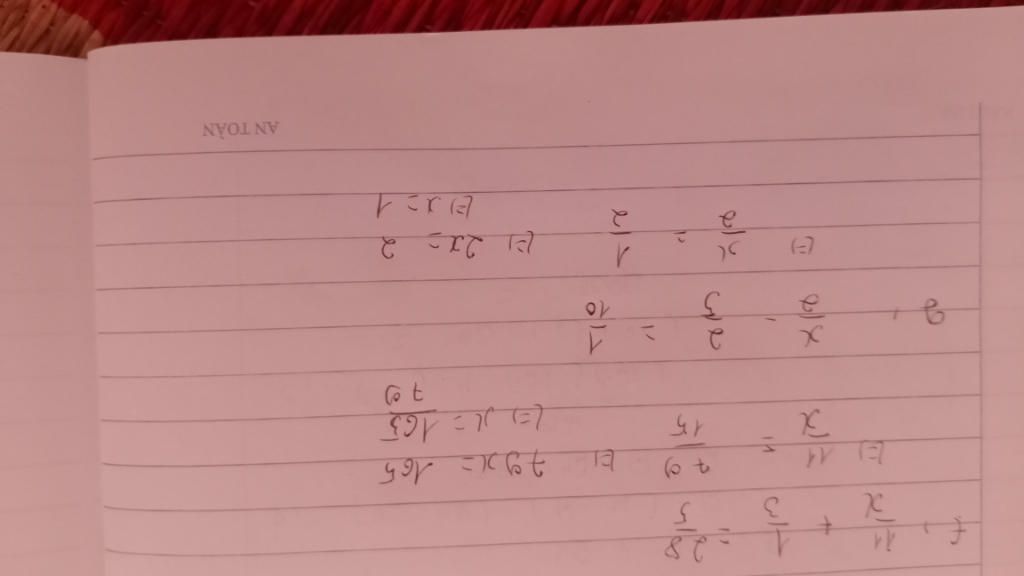 f, 11/x + 1/3 = 28/5
(=) 11/x = 79/15 (=) 79x = 165
(=) x = 165/79
g, x/2 - 2/5 = 1/10
(=) x/2 = 1/2 (=) 2x = 2
(=) x = 1
AN TOÀN